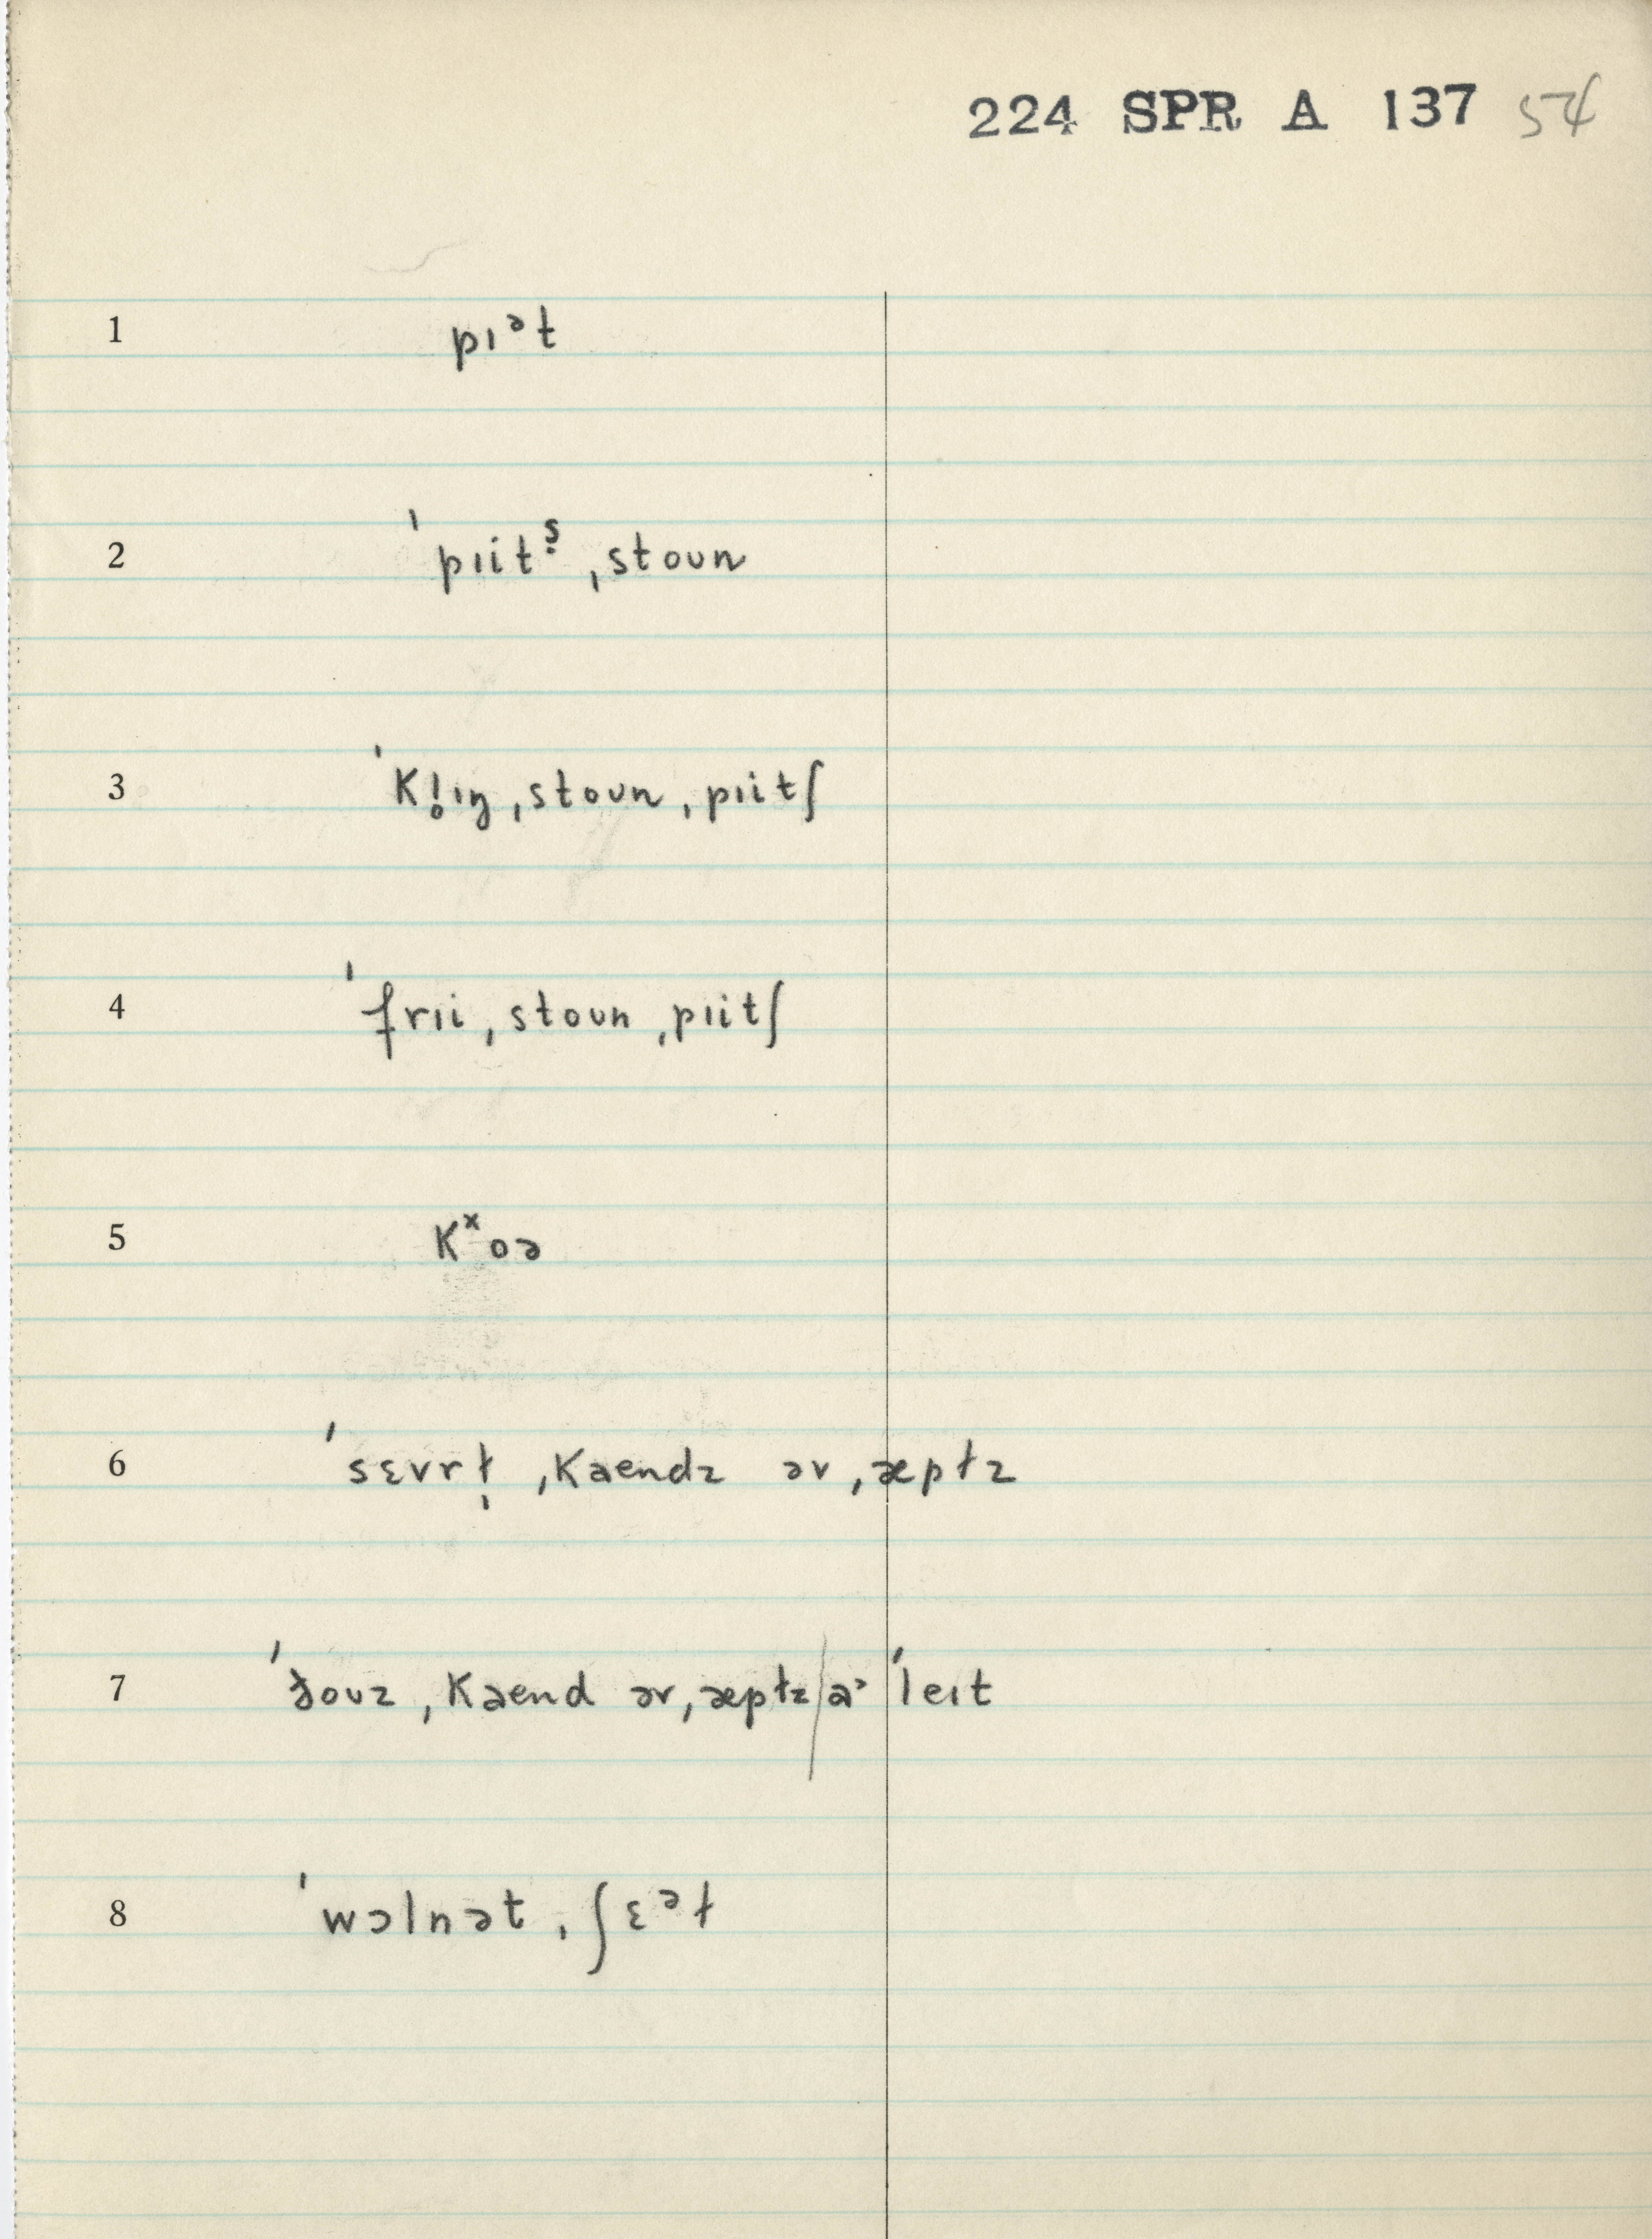 224 SPR A 137 54
1 pɪᵊt
2 ˈpɪitˢ̣ ˌstoʊn
3 ˈkl̥ɪŋ ˌstoʊn ˌpɪitʃ
4 ˈfrɪi ˌstoʊn ˌpɪitʃ
5 kˣoə
6 ˈsɛvrɫ̩ ˌkaendz əv ˌæpɫz
7 ˈðoʊz ˌkaend əv ˌæpɫz | aᵊ ˈleɪt
8 ˈwɔlnət ˌʃɛᵊɫ